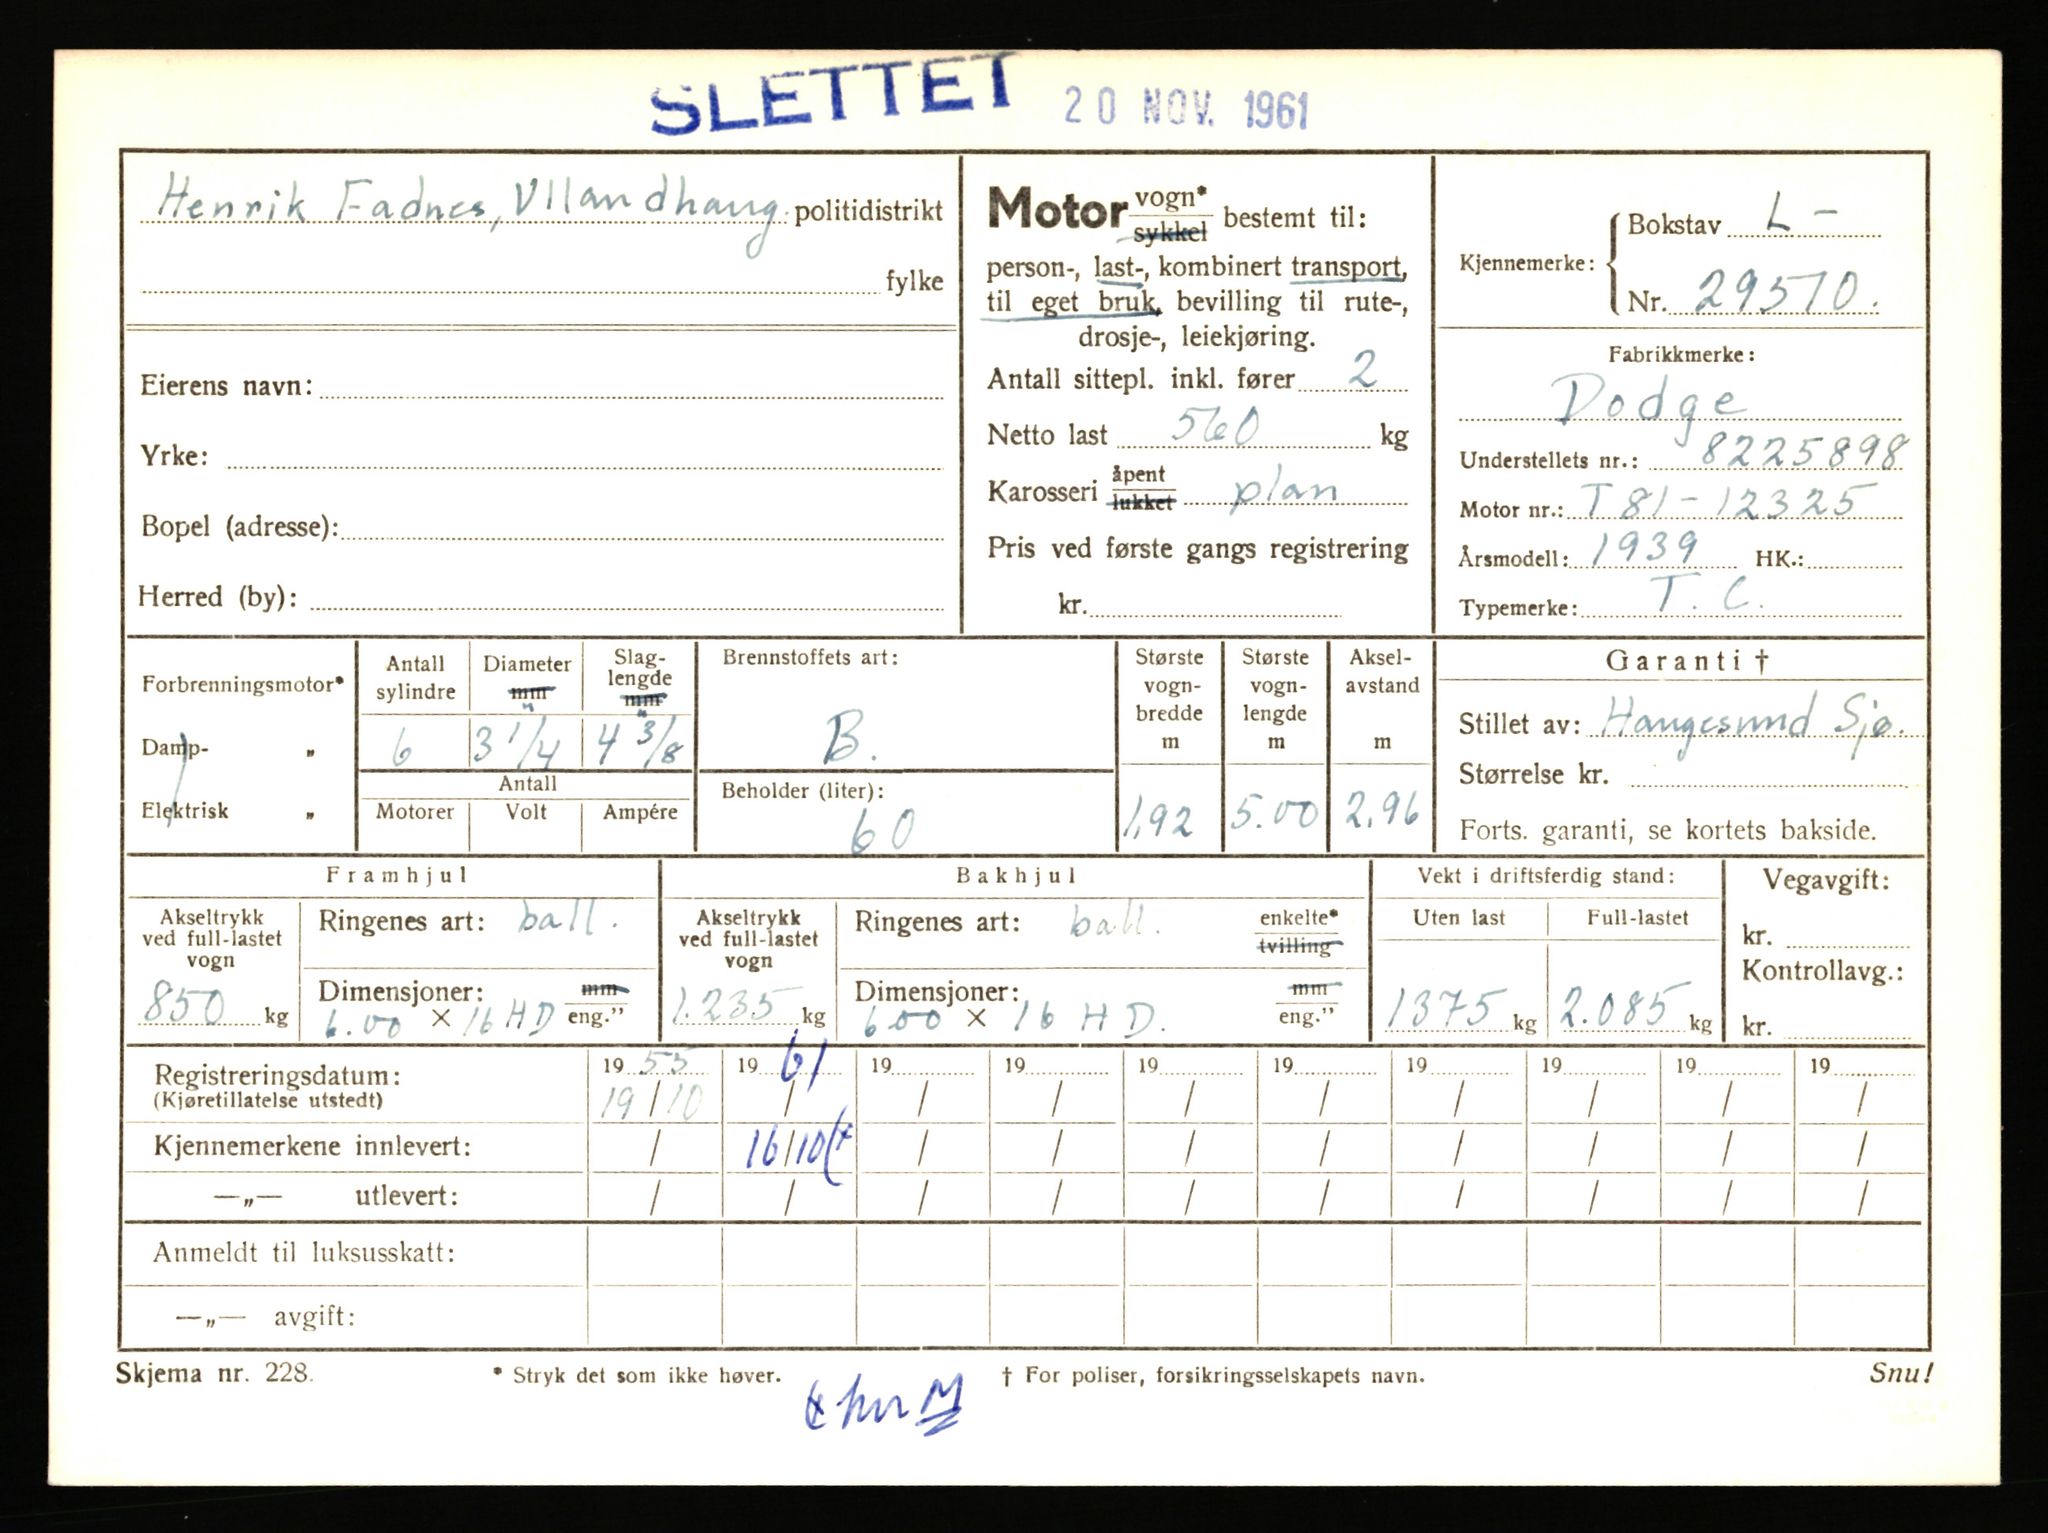 SLETTET 20 NOV. 1961
Henrik Fadnes, Ullandhaug. politidistrikt
fylke
Eierens navn:
Yrke:
Bopel (adresse):
Herred (by):
Motor vogn* sykkel bestemt til:
person-, last-, kombinert transport,
til eget bruk, bevilling til rute-,
drosje-, leiekjøring.
Antall sittepl. inkl. fører 2
Netto last 560 kg
Karosseri åpent lukket plan
Pris ved første gangs registrering
kr.
Kjennemerke: Bokstav L-
Nr. 29570.
Fabrikkmerke:
Dodge
Understellets nr.: 8225898
Motor nr.: T81-12325
Årsmodell: 1939 HK.:
Typemerke: T. C.
Forbrenningsmotor*
Damp- „
Elektrisk „
Antall sylindre
6
Diameter mm "
3 1/4
Slag-
lengde
mm "
4 3/8
Antall
Motorer Volt Ampére
Brennstoffets art:
B.
Beholder (liter):
60
Største
vogn-
bredde
m
1,92
Største
vogn-
lengde
m
5.00
Aksel-
avstand
m
2.96
Garanti †
Stillet av: Haugesund Sjø.
Størrelse kr.
Forts. garanti, se kortets bakside.
Framhjul
Akseltrykk
ved full-lastet
vogn
850 kg
Ringenes art: ball.
Dimensjoner: mm
6.00 × 16 HD eng."
Bakhjul
Akseltrykk
ved full-lastet
vogn
1.235 kg
Ringenes art: ball. enkelte*
tvilling
Dimensjoner: mm
600 × 16 HD. eng."
Vekt i driftsferdig stand:
Uten last Full-lastet
1375 kg 2.085 kg
Vegavgift:
kr.
Kontrollavg.:
kr.
Registreringsdatum: 19 55 19 61 19 19 19 19 19 19 19 19
(Kjøretillatelse utstedt) 19/10 / / / / / / / / /
Kjennemerkene innlevert: / 16/10 / / / / / / / /
—„— utlevert: / / / / / / / / / /
Anmeldt til luksusskatt:
—„— avgift:
Skjema nr. 228. * Stryk det som ikke høver. † For poliser, forsikringsselskapets navn. Snu!